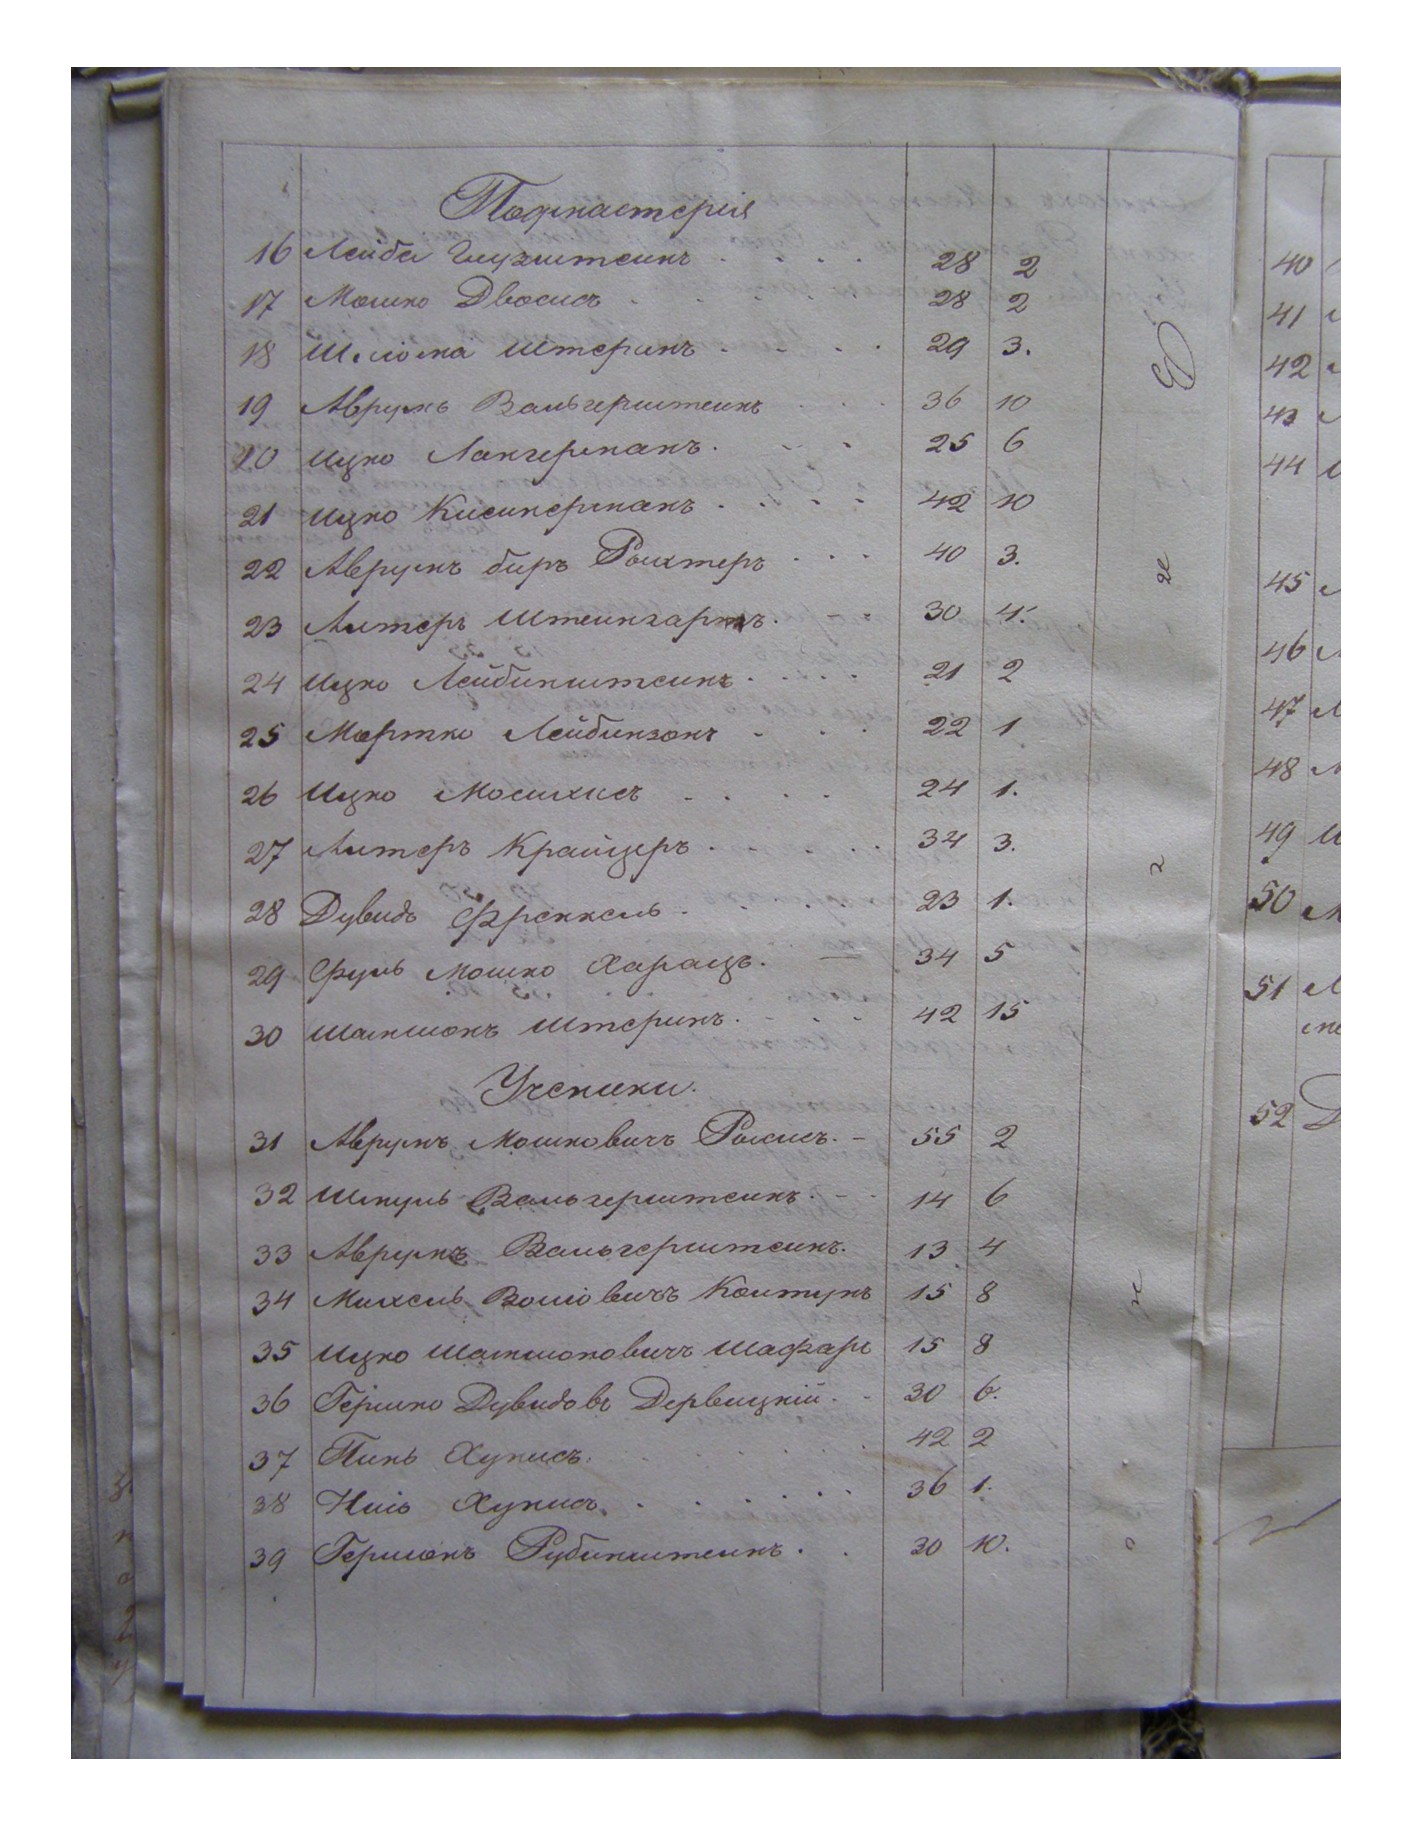 Подмастерія
16 Лейба Глузштеинъ 28 2
17 Мошко Двосисъ 28 2
18 Шліома Штеринъ 29 3.
19 Аврумъ Вальгерштеинъ 36 10
20 Ицко Лангерманъ. 25 6
21 Ицко Кисинерманъ 42 10
22 Аврумъ биръ Рыхтеръ 40 3.
23 Литеръ Штеингартъ. 30 4.
24 Ицко Лейбинштеинъ 21 2
25 Мортко Лейбинзонъ 22 1
26 Ицко Мосихисъ 24 1.
27 Литеръ Крайцеръ 34 3.
28 Дувидъ Френкель 23 1.
29 Фуль Мошко Харацъ. 34 5
30 Шамшонъ Штеринъ 42 15
Ученики.
31 Аврумъ Мошковичъ Рохисъ. 55 2
32 Шмуль Вальгерштеинъ. 14 6
33 Аврумъ Вальгерштеинъ. 13 4
34 Михель Воліовичъ Колтунъ 15 8
35 Ицко Шамшоновичъ Шафаръ 15 8
36 Гершко Дувидовъ Дервицкій. 30 6.
37 Пинь Хунисъ. 42 2
38 Хунисъ. 36 1.
39 Гершонъ Рубинштеинъ. 30 10.
40
41
42
43
44
45
46
47
48
49
50
51
52